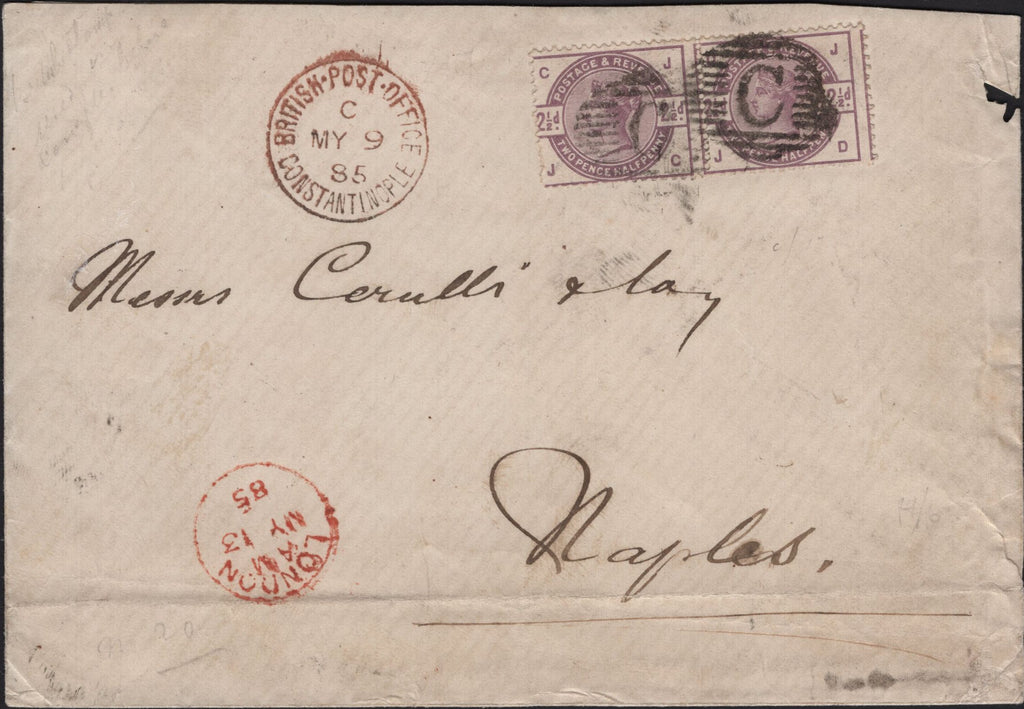 BRITISH·POST·OFFICE
C
MY 9
85
CONSTANTINOPLE
C J
POSTAGE & REVENUE
2½d. 2½d.
TWO PENCE HALFPENNY
J C
J
C
2½d.
HALFPENNY
J D
Messrs Cerulli & Coy
Naples.
LONDON
AM
MY 13
85